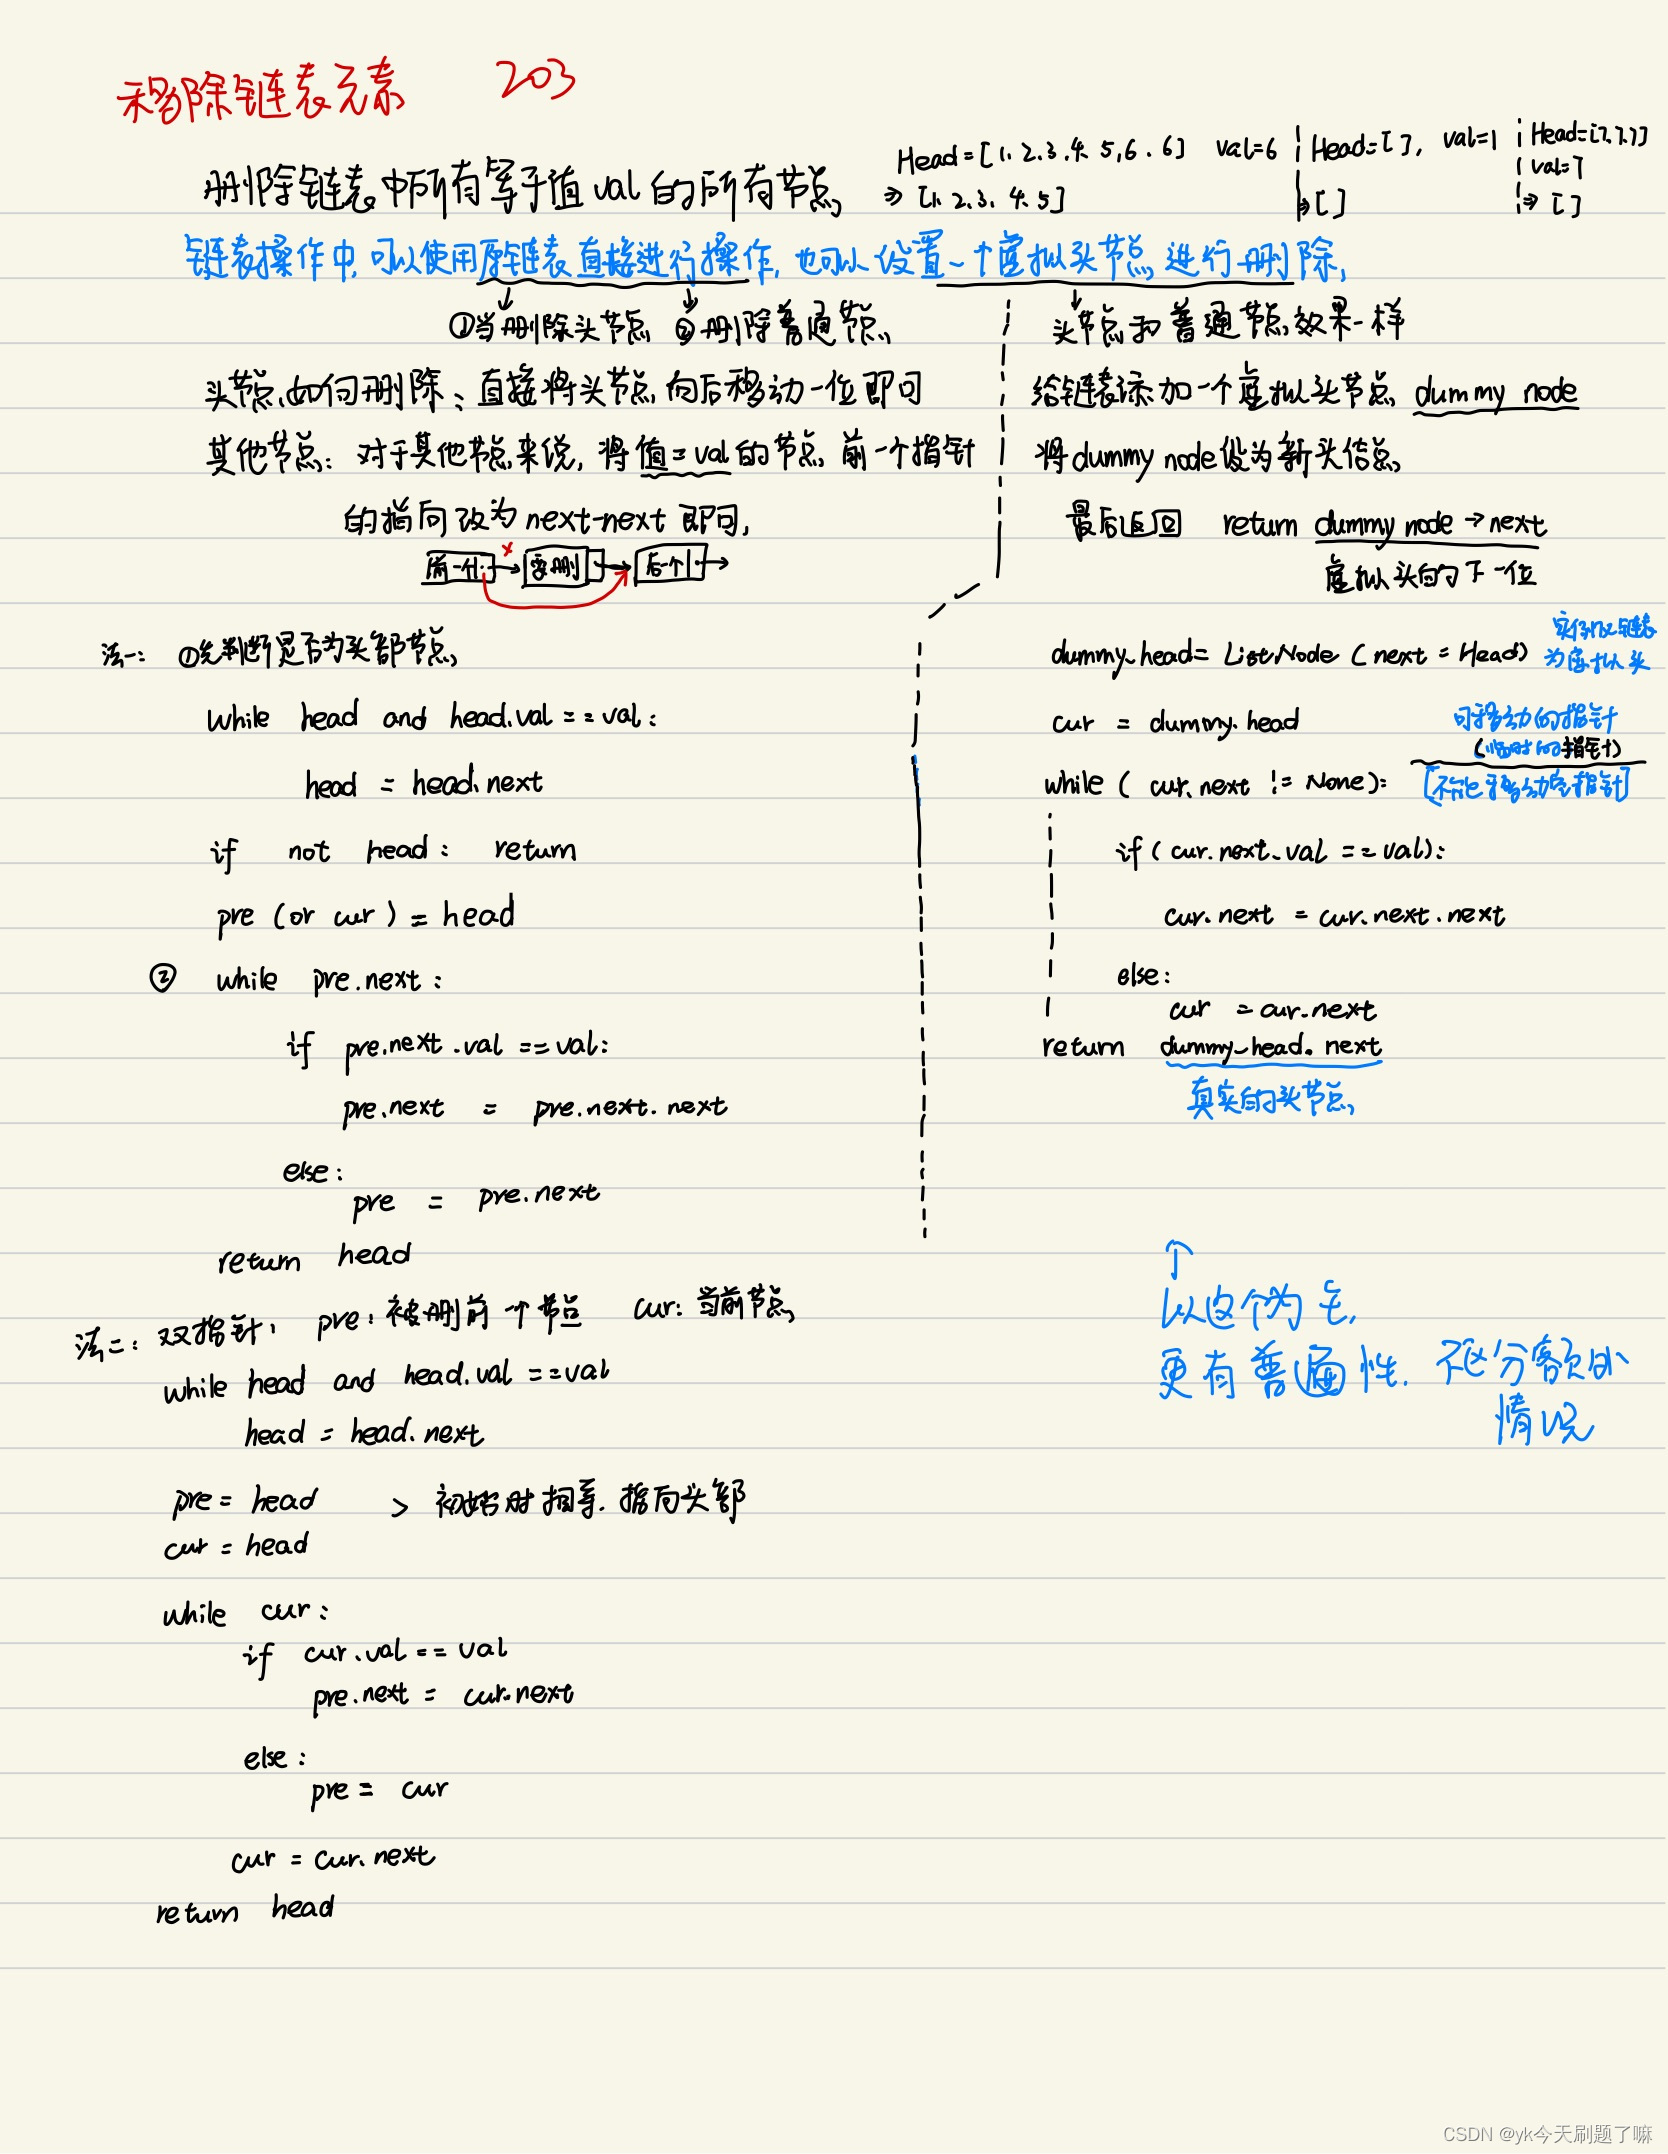 移除链表元素 203
删除链表中所有等于值 val 的所有节点
Head=[1.2.3.4.5,6.6] val=6
⇒ [1.2.3.4.5]
Head=[], val=1
⇒ []
Head=[7.7.7]
val=7
⇒ []
链表操作中,可以使用原链表直接进行操作,也可以设置一个虚拟头节点进行删除,
①当删除头节点 ②删除普通节点
头节点如何删除:直接将头节点向后移动一位即可
其他节点:对于其他节点来说,将值=val的节点 前一个指针
的指向改为 next-next 即可,
前一个 要删 后个
头节点和普通节点效果一样
给链表添加一个虚拟头节点 dummy node
将dummy node设为新头信点
最后返回 return dummy node→next
虚拟头的下一位
法一: ①先判断是否为头部节点
while head and head.val==val:
head = head.next
if not head: return
pre (or cur) = head
② while pre.next:
if pre.next.val ==val:
pre.next = pre.next.next
else:
pre = pre.next
return head
dummy_head= ListNode (next = Head)
为虚拟头
cur = dummy.head
可移动的指针
(临时的指针)
while ( cur.next != None):
[不能移动空指针]
if ( cur.next.val ==val):
cur.next = cur.next.next
else:
cur = cur.next
return dummy_head.next
真实的头节点
↑
以这个为主,
更有普遍性. 不区分额外
情况
法二: 双指针: pre:被删前一个节点 cur:当前节点
while head and head.val ==val
head = head.next
pre = head > 初始时相等.指向头部
cur = head
while cur:
if cur.val == val
pre.next = cur.next
else:
pre = cur
cur = cur.next
return head
CSDN @yk今天刷题了嘛